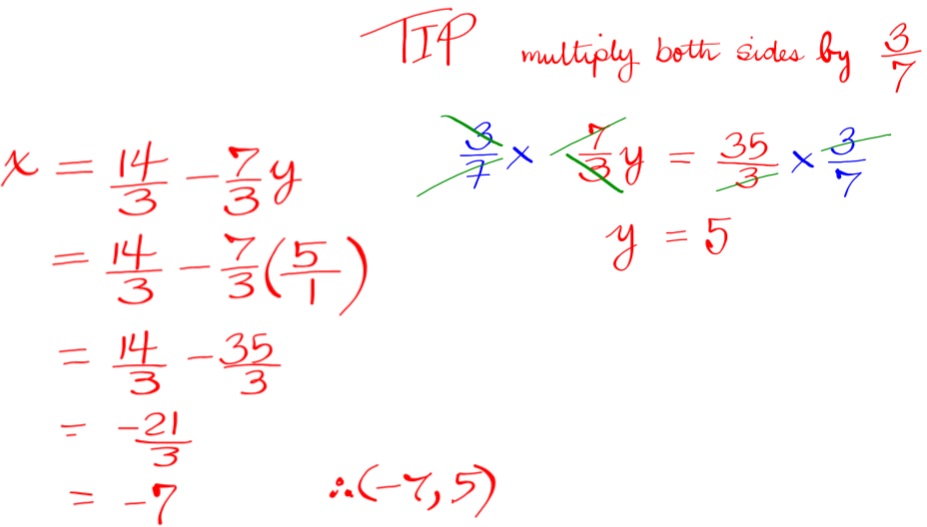 TIP multiply both sides by 3/7
3/7 × 7/3 y = 35/3 × 3/7
y = 5
x = 14/3 - 7/3 y
= 14/3 - 7/3 (5/1)
= 14/3 - 35/3
= -21/3
= -7
∴ (-7, 5)